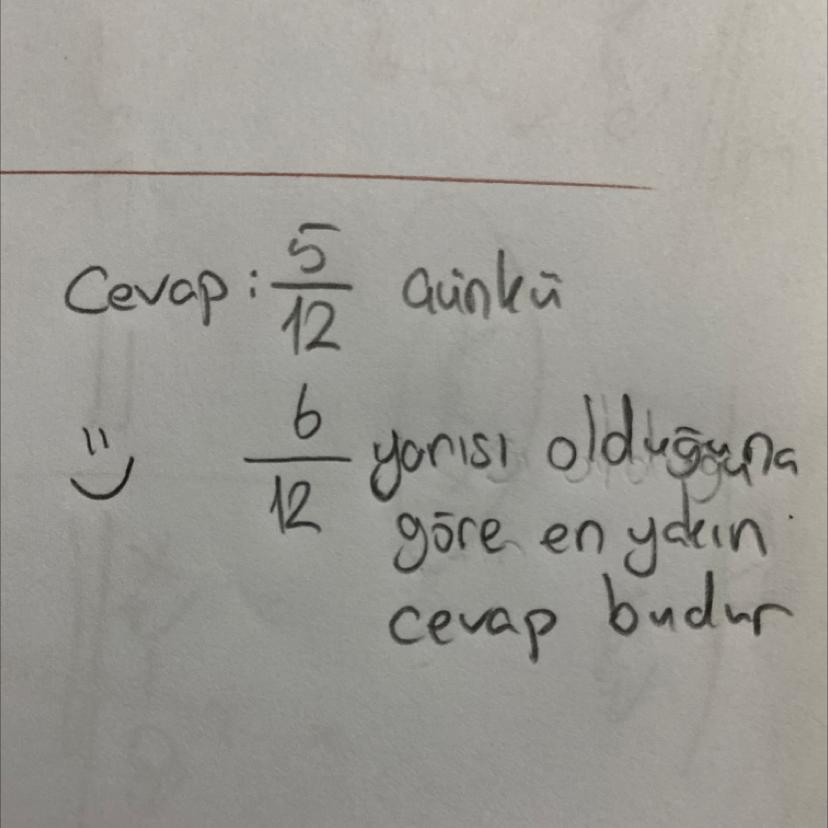 Cevap: 5/12 çünkü
6/12 yarısı olduğuna
göre en yakın
cevap budur